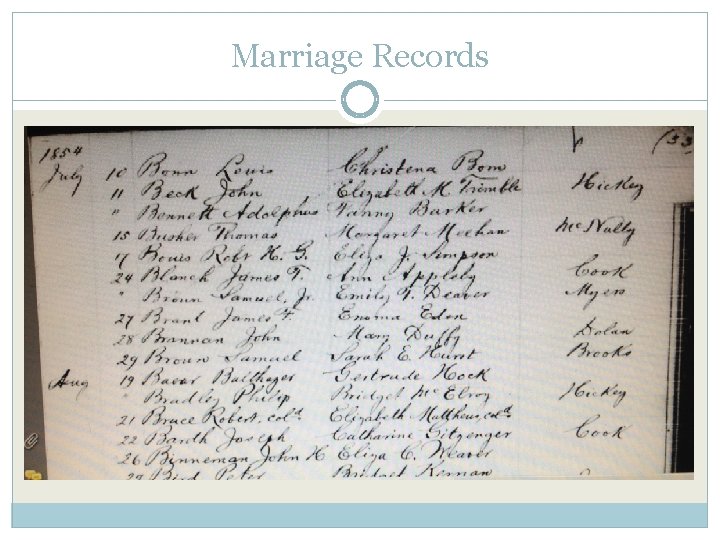 Marriage Records
1854 (53
July 10 Bonn Louis Christena Bom
11 Beck John Elizabeth M. Trimble Hickey
" Bennett Adolphus Fanny Barker
15 Busher Thomas Margaret Meehan McNally
17 Bouis Robt H. G. Eliza J. Simpson
24 Blanch James T. Ann Appleby Cook
" Broun Samuel, Jr. Emily F. Deaver Myers
27 Brant James F. Emma Eden
28 Brannan John Mary Duffy Dolan
29 Broun Samuel Sarah E. Hurst Brooks
Aug 19 Bauer Balthazer Gertrude Hock
" Bradley Philip Bridget McElroy Hickey
21 Bruce Robert, cold. Elizabeth Matthews, cold.
22 Banth Joseph Catharine Gitzenger Cook
26 Binneman John H Eliza C. Weaver
Bird Peter Bridget Kernan